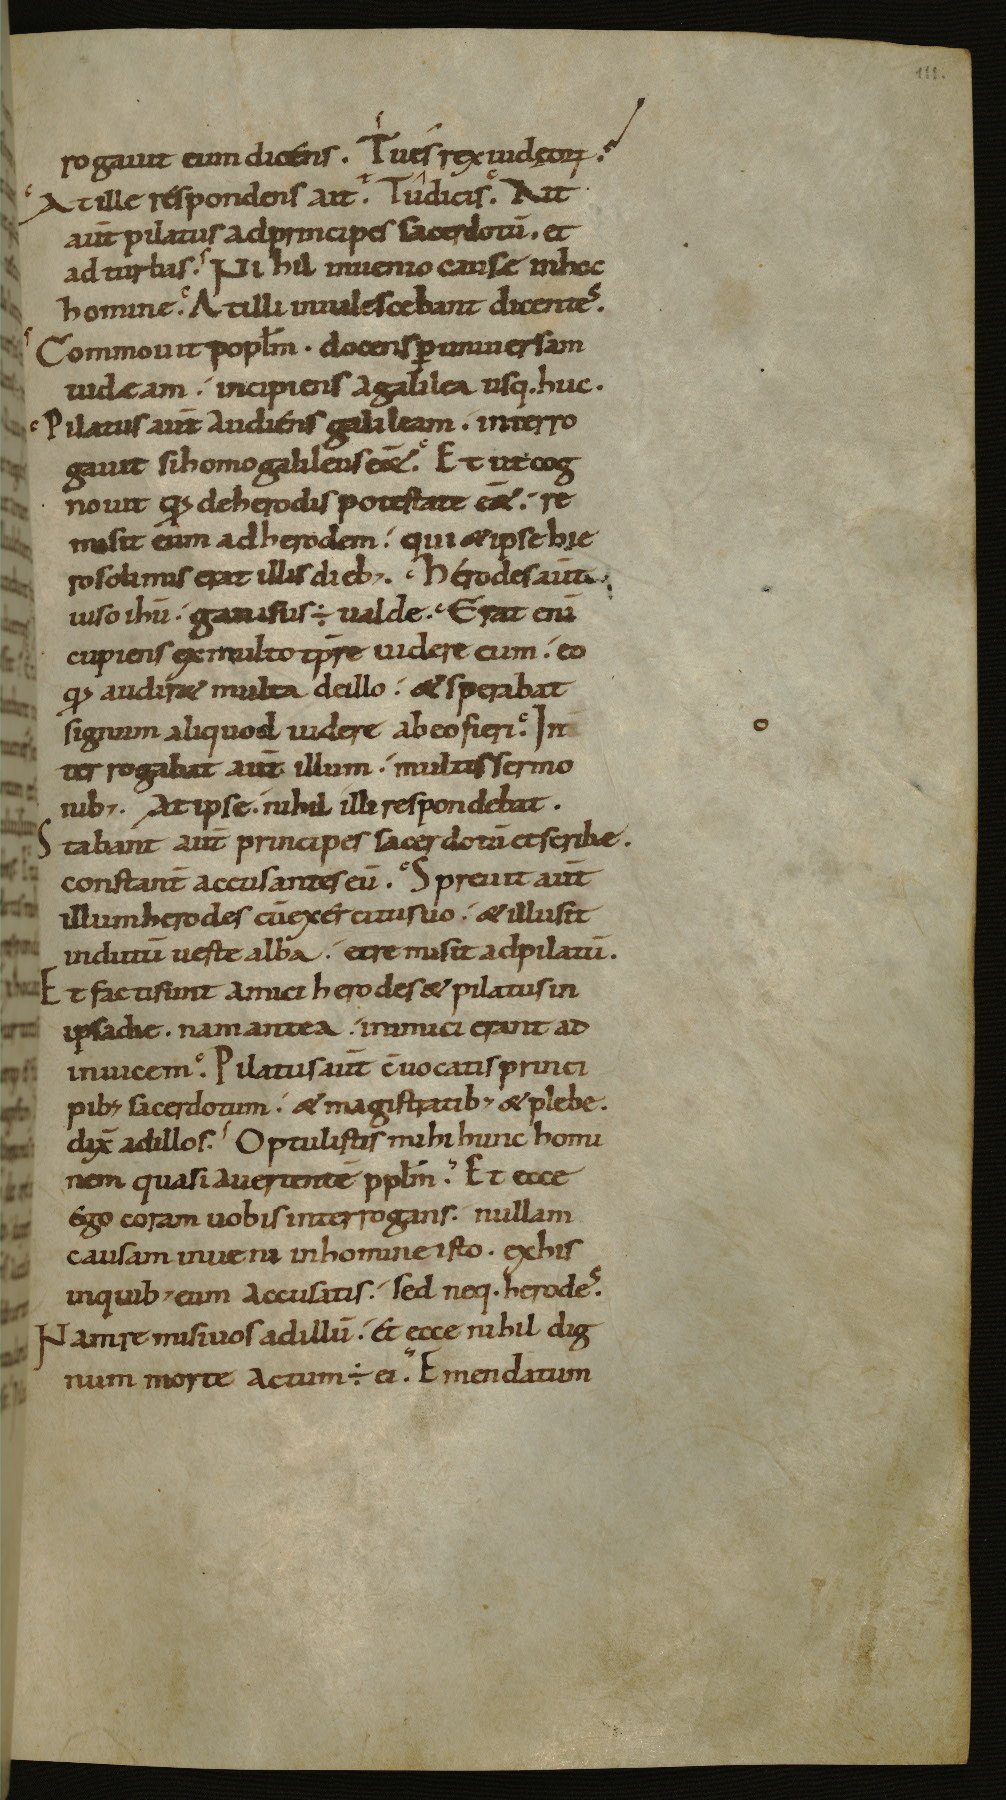 111.
rogauit eum dicens. Tu es rex iudęoꝝ.
At ille respondens ait. Tu dicis. Ait
aut̄ pilatus ad principes sacerdotū. et
ad turbas. Nihil inuenio causæ in hoc
homine. At illi inualescebant dicentes.
Commouit popl̄m. docens ꝑ uniuersam
iudæam. incipiens a galilea usq. huc.
Pilatus aut̄ audiens galileam. interro
gauit si homo galileus eēt. Et ut cog
nouit qđ de herodis potestate eēt. re
misit eum ad herodem. qui & ipse hie
rosolimis erat illis dieb;. Herodes aut̄
uiso ihū. gauisus ÷ ualde. Erat enī
cupiens ex multo tp̄re uidere eum. eo
qđ audir& multa de illo. & sperabat
signum aliquod uidere ab eo fieri. In
terrogabat aut̄ illum. multis sermo
nib;. At ipse. nihil illi respondebat.
Stabant aut̄ principes sacerdotū et scribæ.
constant̄ accusantes eū. Spreuit aut̄
illum herodes cū exercitu suo. & illusit
indutū ueste alba. et remisit ad pilatū.
Et facti sunt amici herodes & pilatus in
ipsa die. nam antea. inimici erant ad
inuicem. Pilatus aut̄ c̄uocatis princi
pib; sacerdotum. & magistratib; & plebe.
dix̄ ad illos. Optulistis mihi hunc homi
nem quasi auertentē ppl̄m. Et ecce
ego coram uobis interrogans. nullam
causam inueni in homine isto. ex his
in quib; eum accusatis. sed neq. herodes.
Nam remisi uos ad illū. Et ecce nihil dig
num morte actum ÷ ei. Emendatum